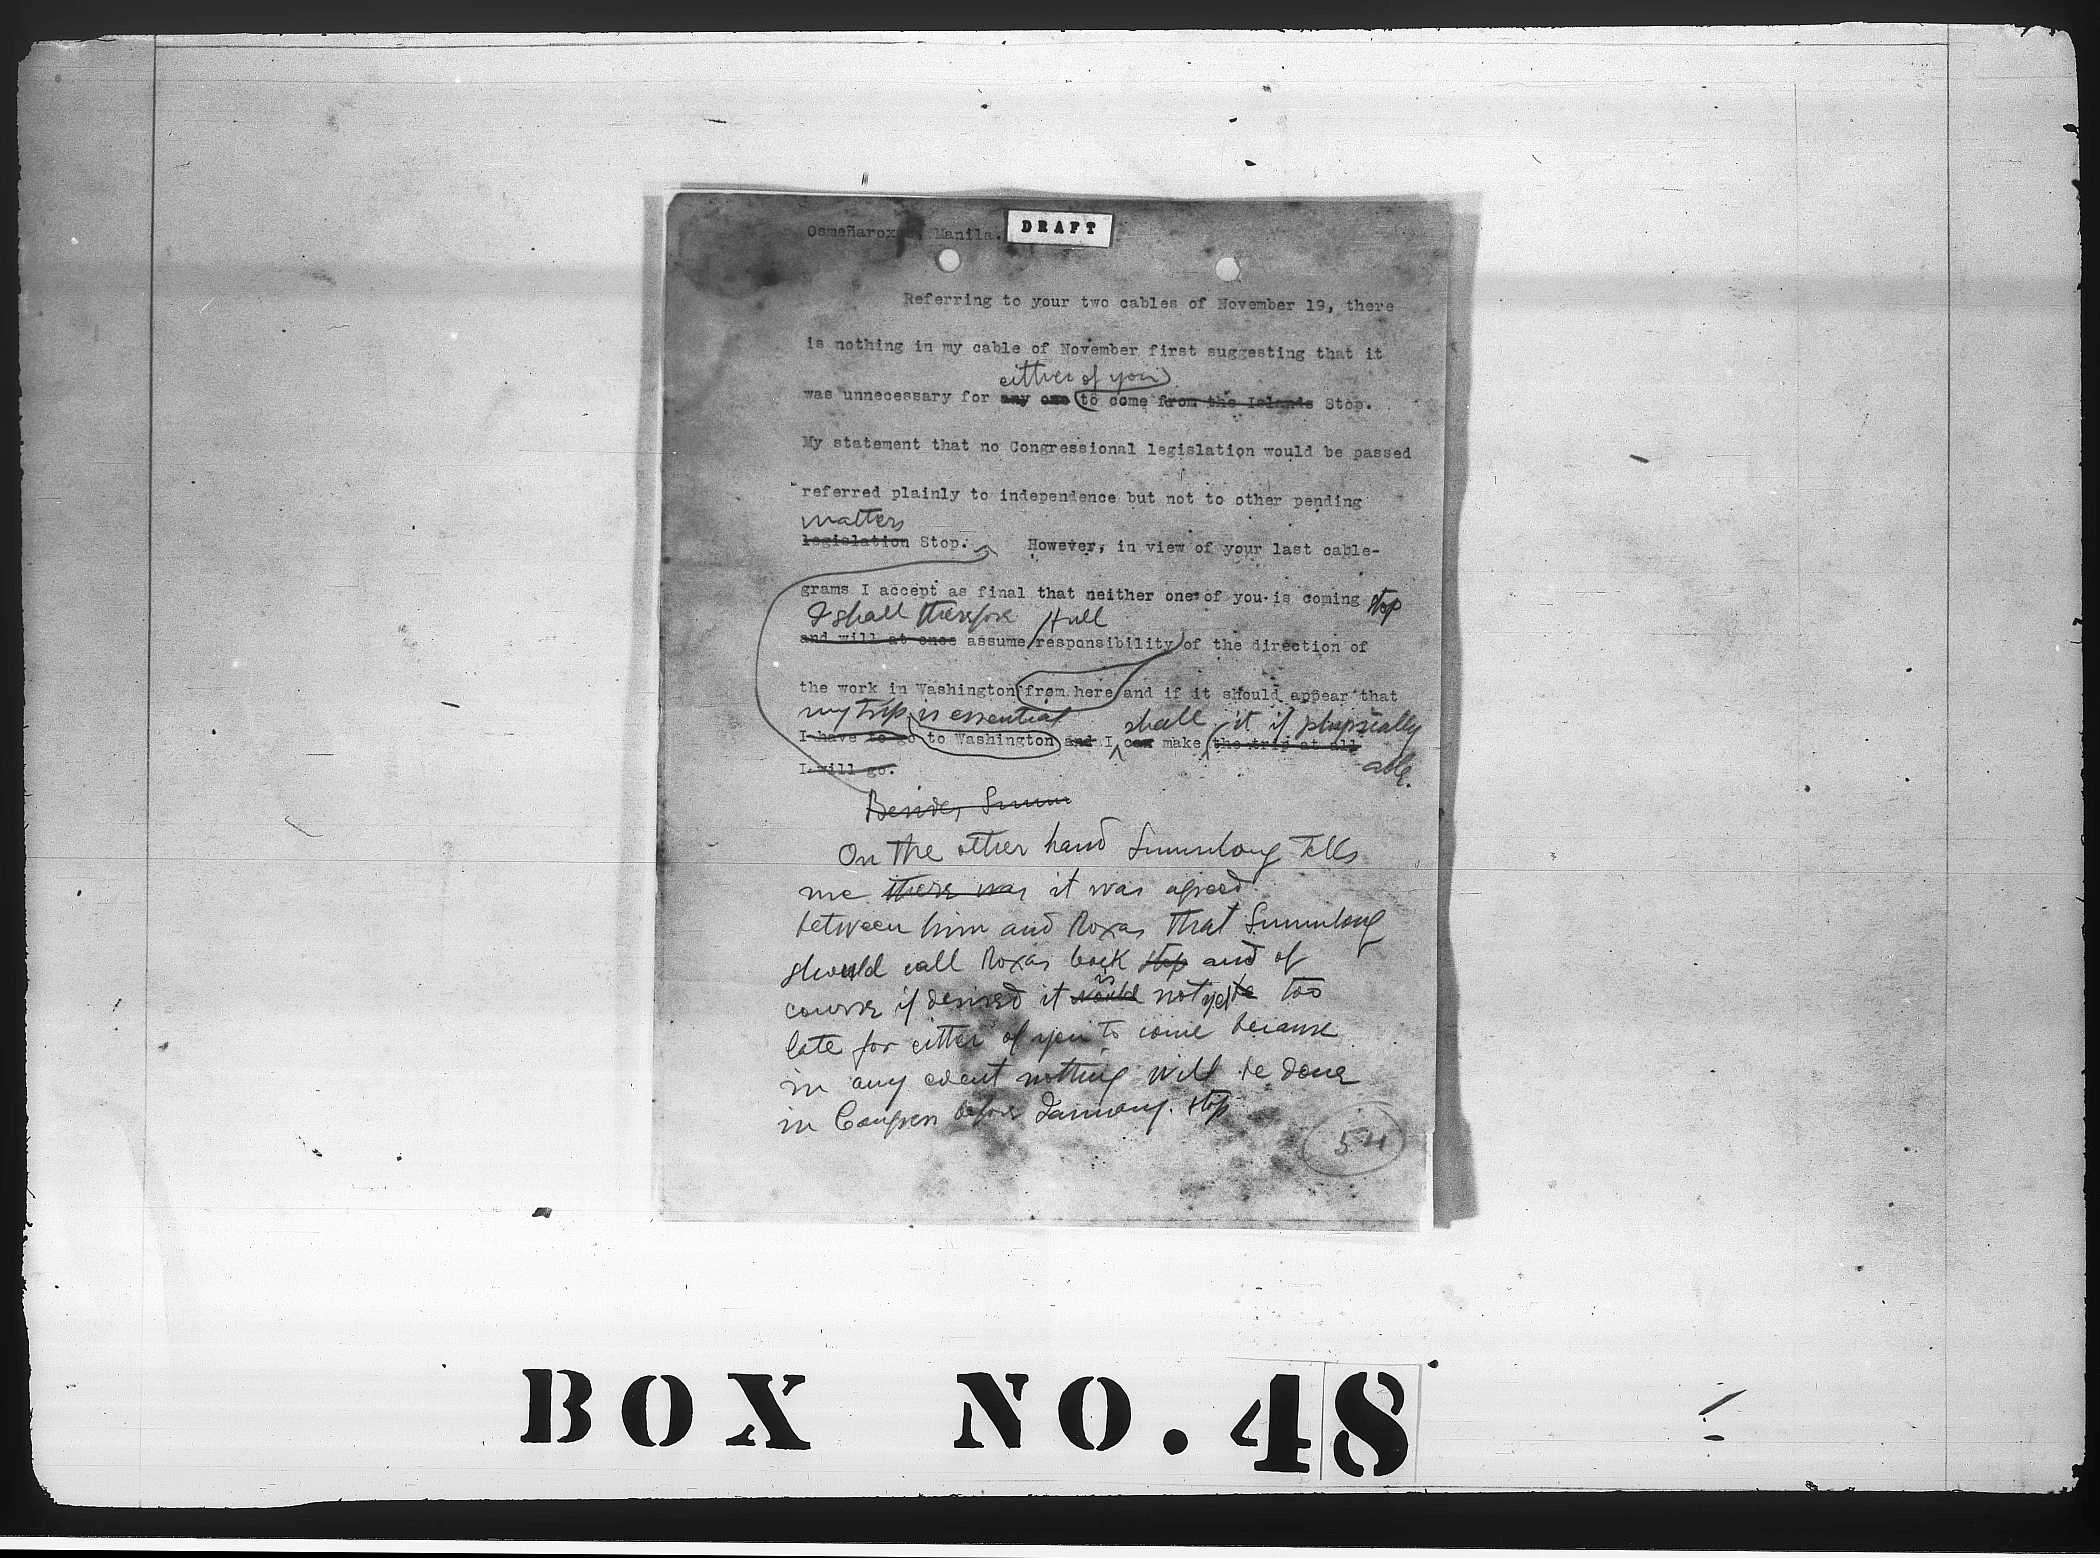 DRAFT
Osmeñarox Manila.
Referring to your two cables of November 19, there
is nothing in my cable of November first suggesting that it
either of you
was unnecessary for any one to come from the Islands Stop.
My statement that no Congressional legislation would be passed
referred plainly to independence but not to other pending
matters
legislation Stop. However, in view of your last cable-
grams I accept as final that neither one of you is coming stop
I shall therefore full
and will at once assume responsibility of the direction of
the work in Washington from here and if it should appear that
my trip is essential shall it if physically
I have to go to Washington and I can make the trip at all
able.
I will go.
Besides, Sumu
On the other hand Sumulong tells
me there was it was agreed
between him and Roxas that Sumulong
should call Roxas back stop and of
is
course if desired it would not yet be too
late for either of you to come because
in any event nothing will be done
in Congress before January. stop
54
BOX NO. 48